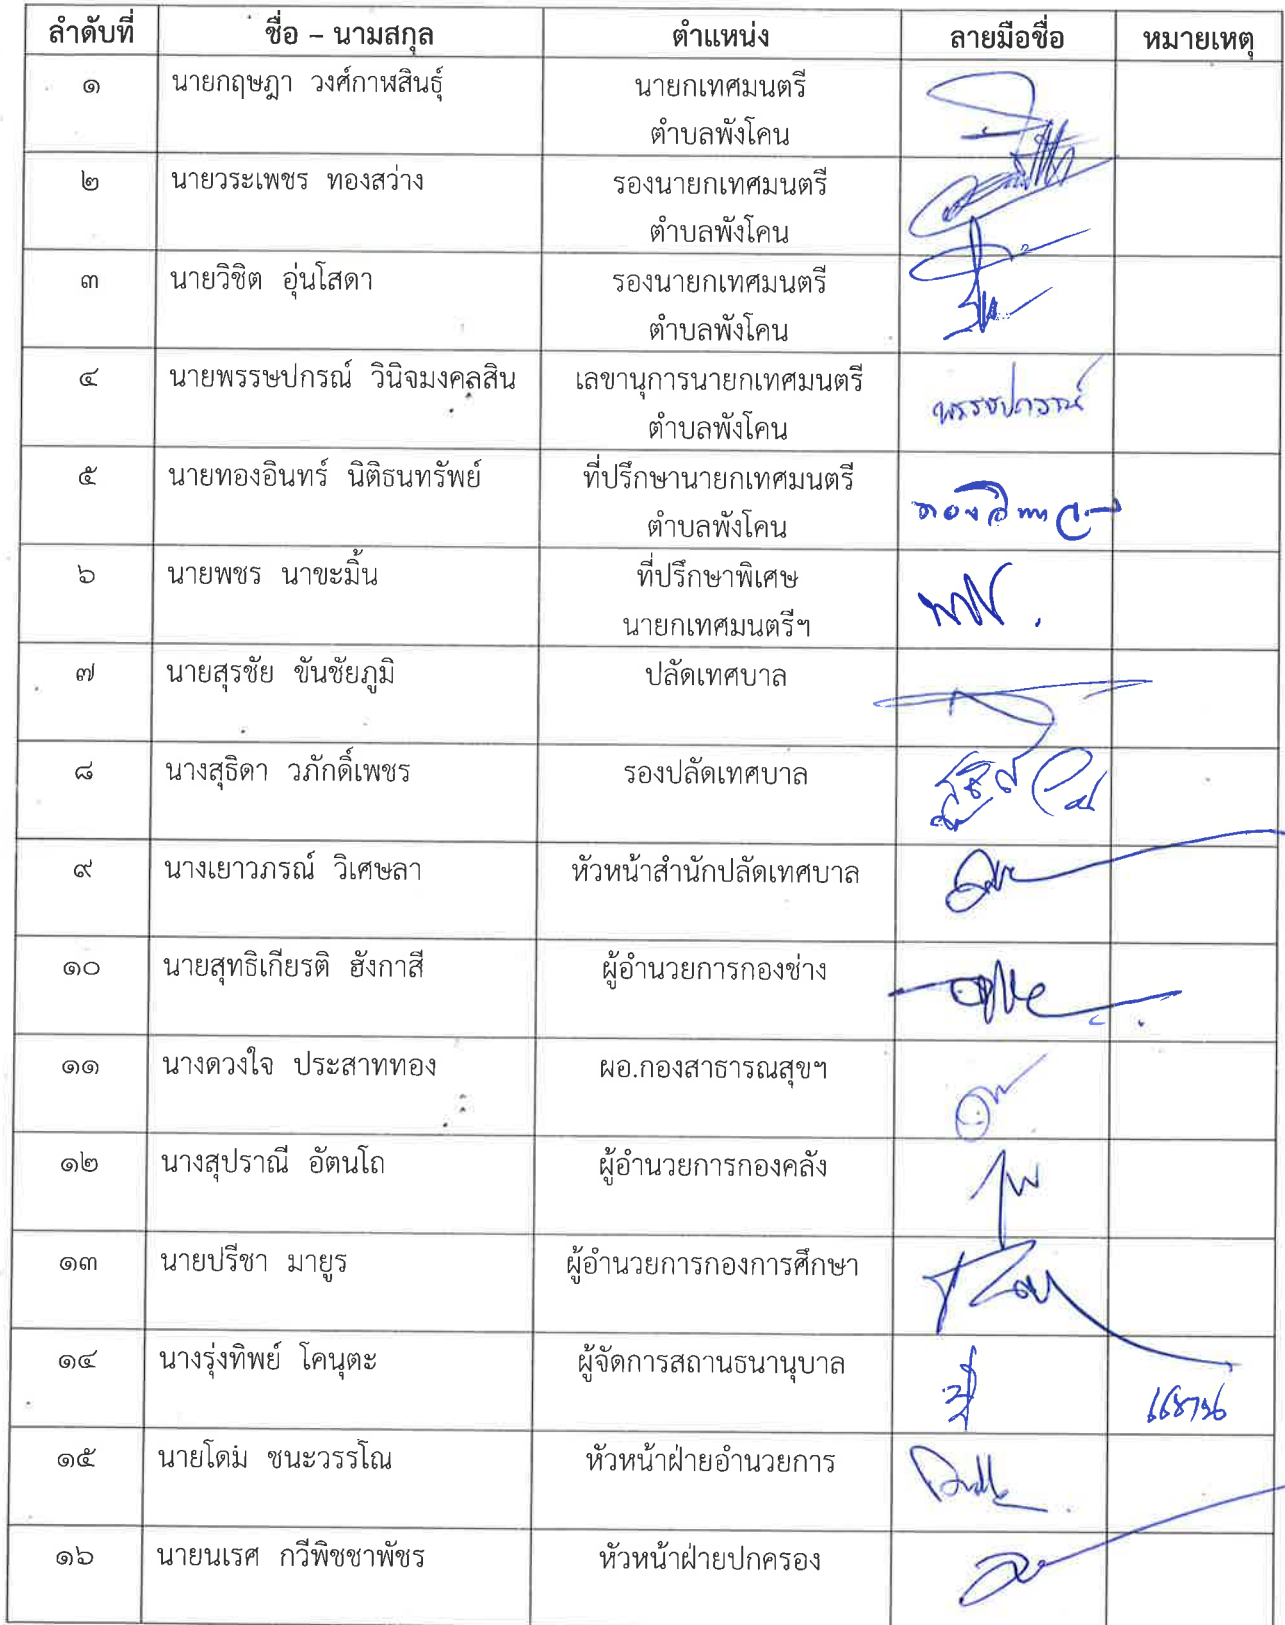 ลำดับที่ ชื่อ – นามสกุล ตำแหน่ง ลายมือชื่อ หมายเหตุ
๑ นายกฤษฎา วงศ์กาฬสินธุ์ นายกเทศมนตรี
ตำบลพังโคน
๒ นายวระเพชร ทองสว่าง รองนายกเทศมนตรี
ตำบลพังโคน
๓ นายวิชิต อุ่นโสดา รองนายกเทศมนตรี
ตำบลพังโคน
๔ นายพรรษปกรณ์ วินิจมงคลสิน เลขานุการนายกเทศมนตรี
ตำบลพังโคน พรรษปกรณ์
๕ นายทองอินทร์ นิติธนทรัพย์ ที่ปรึกษานายกเทศมนตรี
ตำบลพังโคน
๖ นายพชร นาขะมิ้น ที่ปรึกษาพิเศษ
นายกเทศมนตรีฯ
๗ นายสุรชัย ขันชัยภูมิ ปลัดเทศบาล
๘ นางสุธิดา วภักดิ์เพชร รองปลัดเทศบาล
๙ นางเยาวภรณ์ วิเศษลา หัวหน้าสำนักปลัดเทศบาล
๑๐ นายสุทธิเกียรติ ฮังกาสี ผู้อำนวยการกองช่าง
๑๑ นางดวงใจ ประสาททอง ผอ.กองสาธารณสุขฯ
๑๒ นางสุปราณี อัตนโถ ผู้อำนวยการกองคลัง
๑๓ นายปรีชา มายูร ผู้อำนวยการกองการศึกษา
๑๔ นางรุ่งทิพย์ โคนุตะ ผู้จัดการสถานธนานุบาล
๑๕ นายโดม ชนะวรรโณ หัวหน้าฝ่ายอำนวยการ
๑๖ นายนเรศ กวีพิชชาพัชร หัวหน้าฝ่ายปกครอง